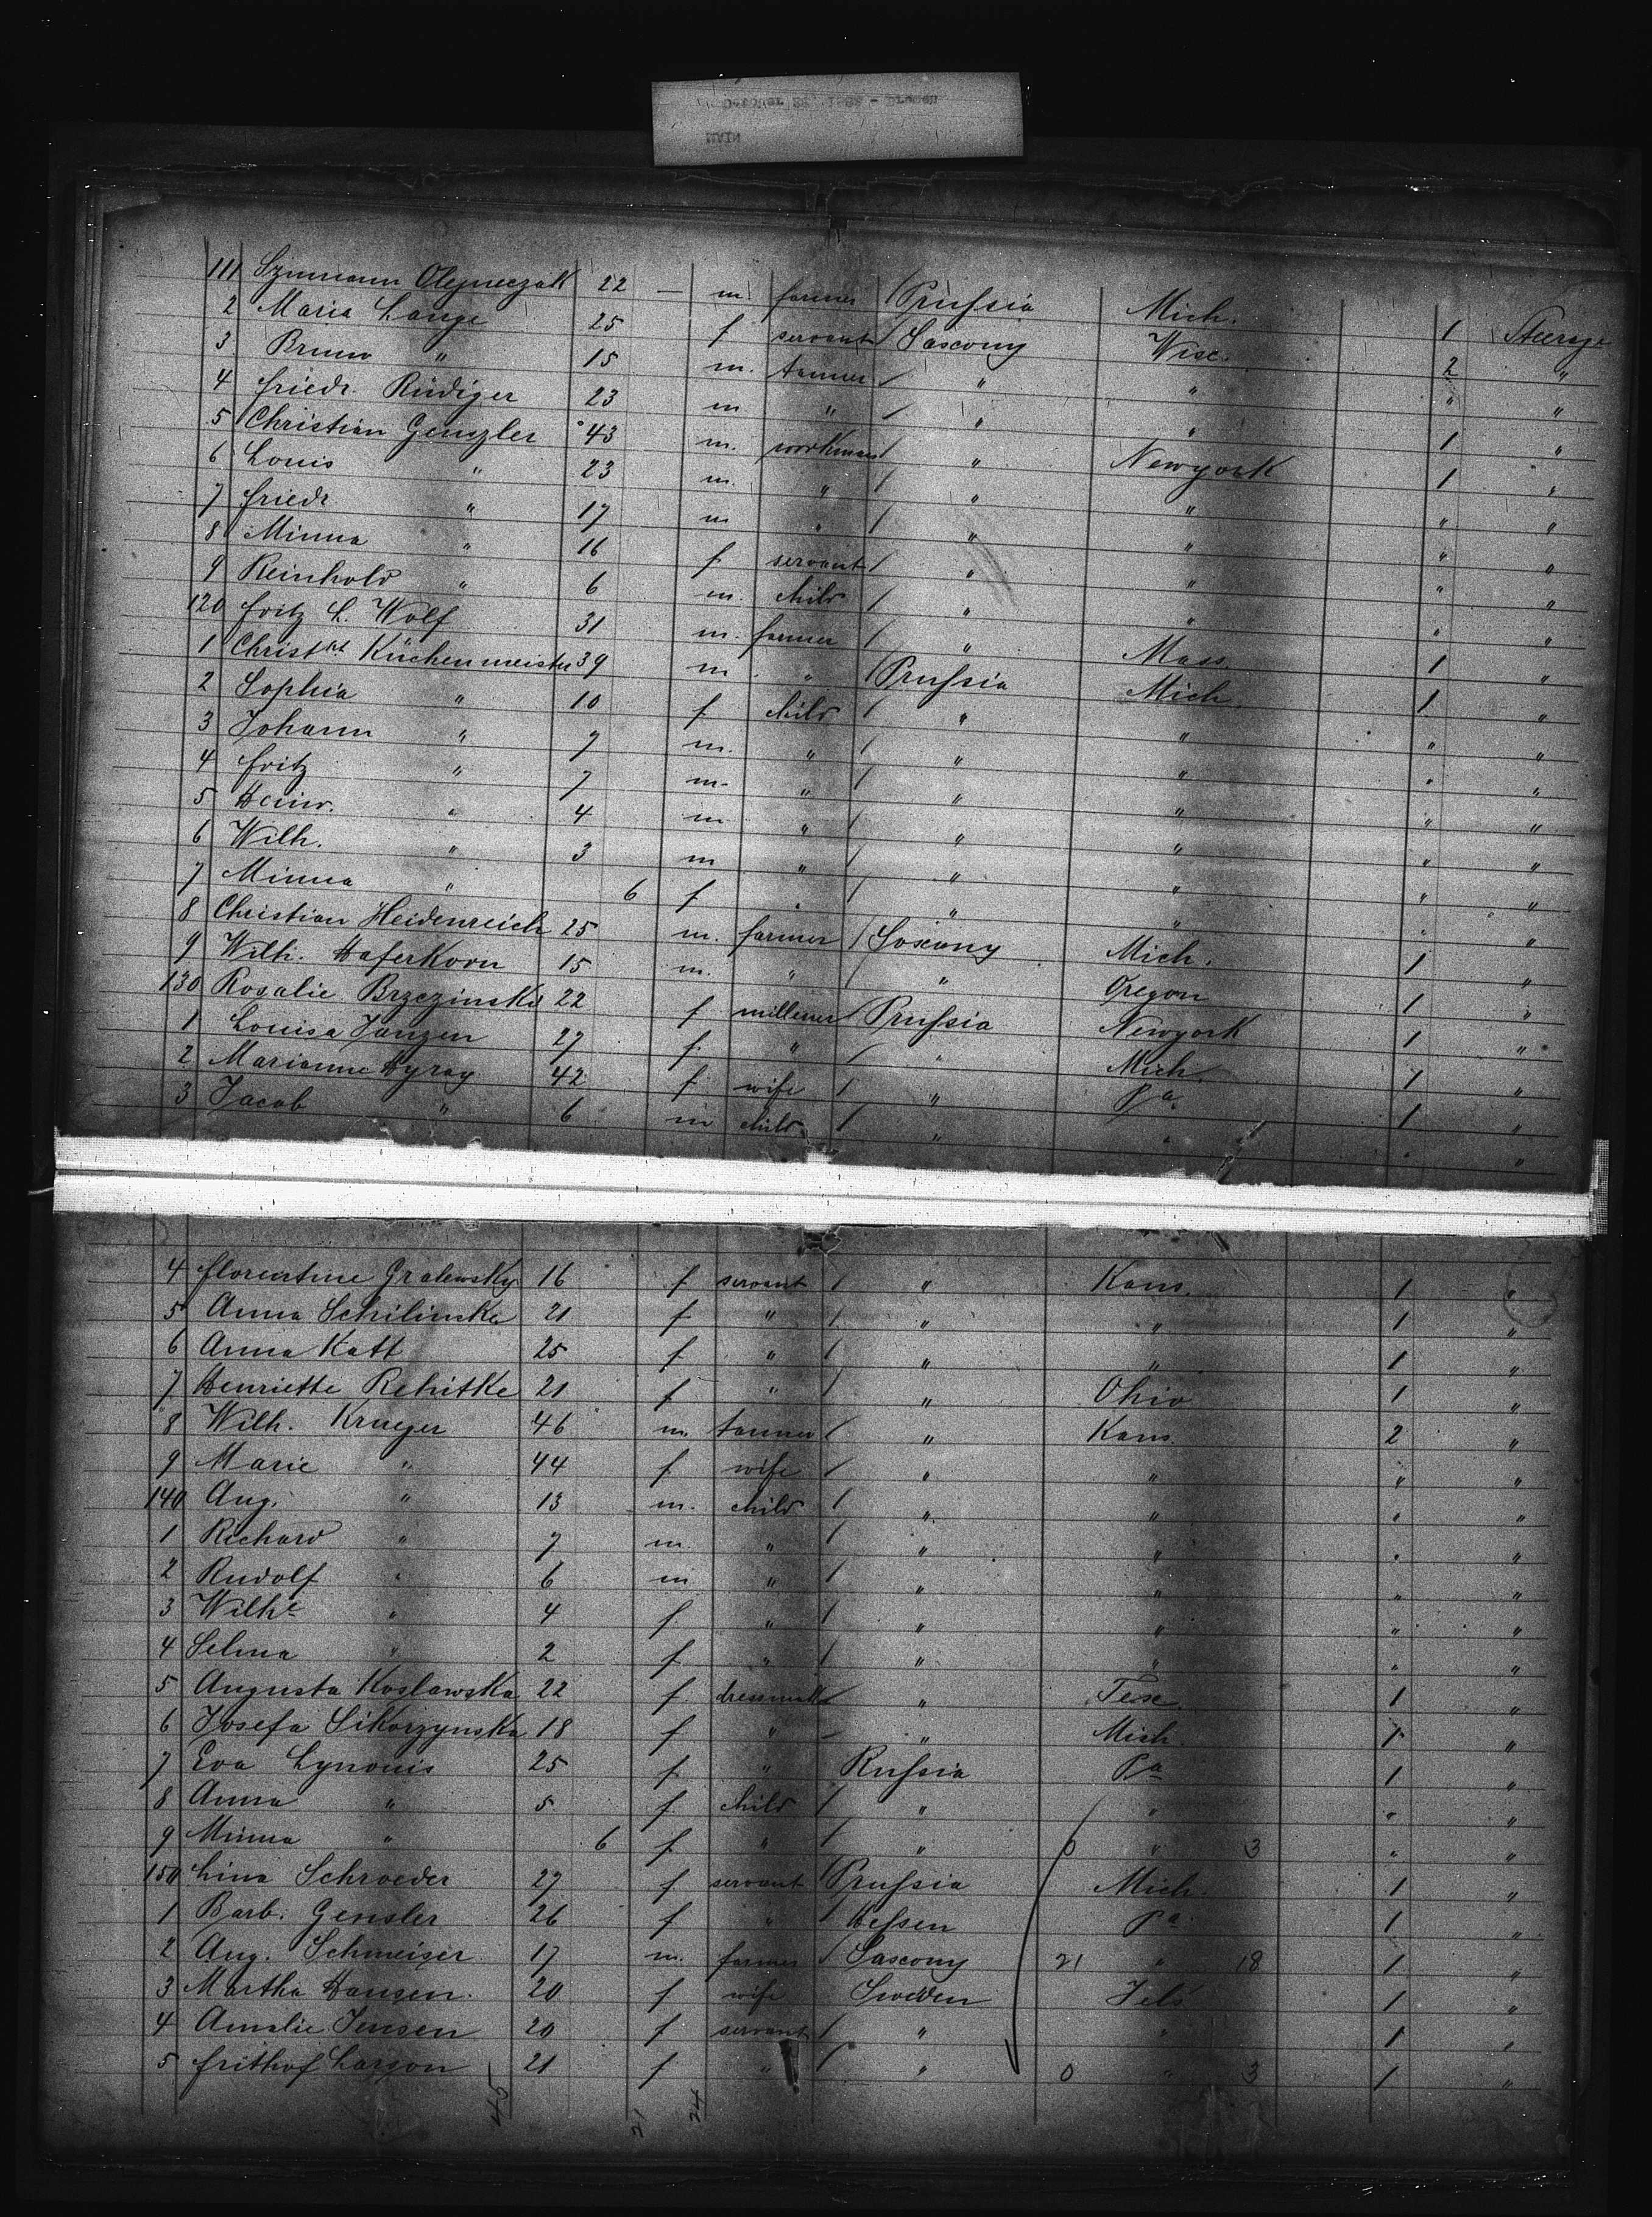 111 Szymann Olejneczak 22 — m. farmer / Prussia Mich. 1 Steerage
2 Maria Lange 25 f servant / Saxony Wisc. 2 "
3 Bruno " 15 m. tanner / " " " "
4 Friedr. Rüdiger 23 m " / " " 1 "
5 Christian Genzler 43 m. workman / " Newyork 1 "
6 Louis " 23 m. " / " " " "
7 Friedr " 17 m " / " " " "
8 Minna " 16 f servant / " " " "
9 Reinhold " 6 m. child / " " " "
120 Fritz L. Wolf 31 m. farmer / " Mass. 1 "
1 Christ Küchenmeister 39 m. " / Prussia Mich. 1 "
2 Sophia " 10 f child / " " " "
3 Johann " 9 m. " / " " " "
4 Fritz " 7 m. " / " " " "
5 Heinr. " 4 m " / " " " "
6 Wilh. " 3 m " / " " " "
7 Minna " 6 f " / " " " "
8 Christian Heidenreich 25 m. farmer / Saxony Mich. 1 "
9 Wilh. Haferkorn 15 m. " / " Oregon 1 "
130 Rosalie Brzezinski 22 f milliner / Prussia Newyork 1 "
1 Louisa Janzen 27 f. " / " Mich. 1 "
2 Marianne Hyray 42 f. wife / " Pa. 1 "
3 Jacob " 6 m child / " " " "
4 Florentine Gralewsky 16 f servant / " Kans. 1 "
5 Anna Schilinska 21 f " / " " 1 "
6 Anna Katt 25 f " / " " 1 "
7 Henriette Rehitke 21 f " / " Ohio 1 "
8 Wilh. Krueger 46 m tanner / " Kans. 2 "
9 Marie " 44 f wife / " " " "
140 Aug. " 13 m. child / " " " "
1 Richard " 7 m. " / " " " "
2 Rudolf " 6 m " / " " " "
3 Wilhe " 4 f " / " " " "
4 Selma " 2 f " / " " " "
5 Augusta Koslawska 22 f. dressmak / " Tex. 1 "
6 Josefa Sikorzynska 18 f " / " Mich. 1 "
7 Eva Lynouis 25 f " Russia Pa 1 "
8 Anna " 5 f child / " " " "
9 Minna " 6 f " / " 0 " 3 " "
150 Lina Schroeder 27 f servant / Prussia Mich. 1 "
1 Barb. Gensler 26 f " / Hessen Pa. 1 "
2 Aug. Schmeiser 17 m. farmer / Saxony 21 " 18 1 "
3 Martha Hansen 20 f wife Sweden Jels 1 "
4 Amalie Jensen 20 f servant / " " 1 "
5 Frithof Larson 21 f " / " 0 " 3 1 "
45 21 24